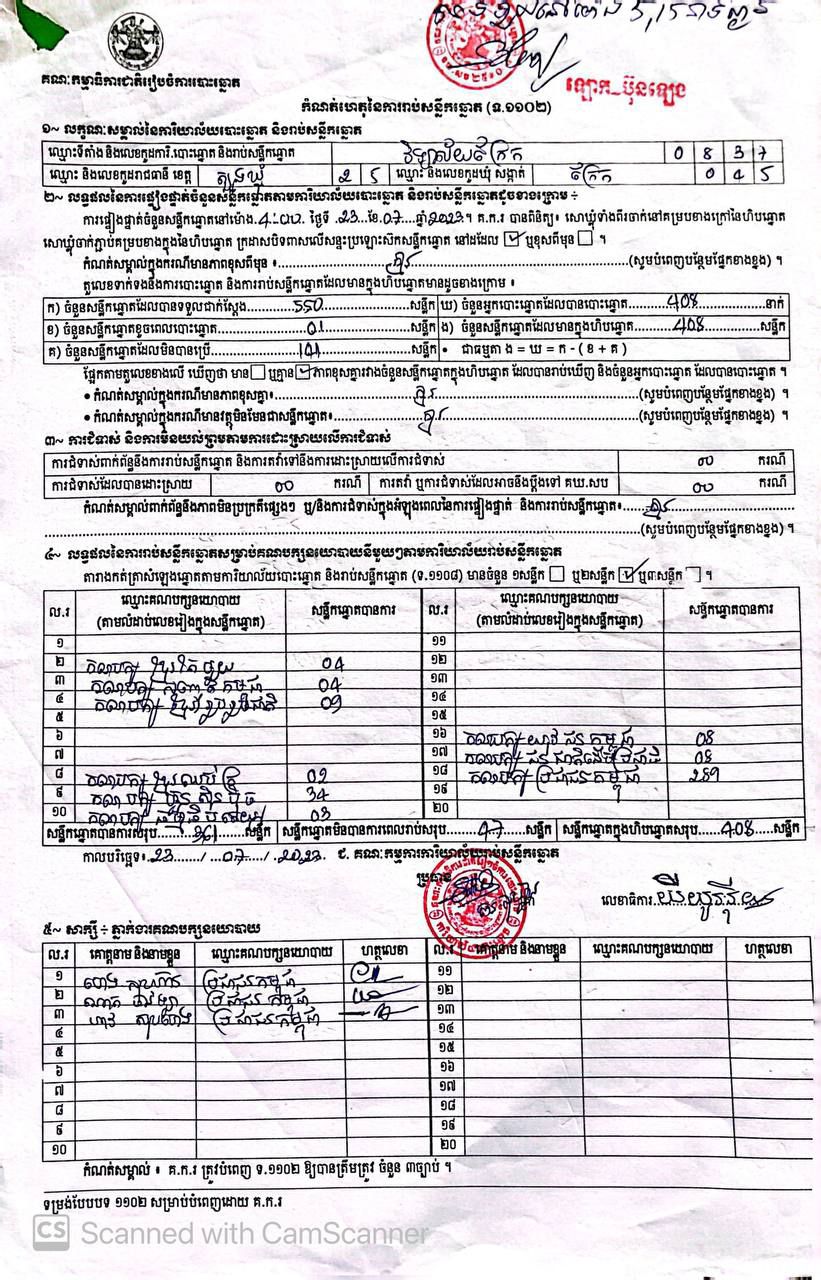 គណៈកម្មាធិការជាតិរៀបចំការបោះឆ្នោត
ឡោក ប៊ុនឡេង
កំណត់ហេតុនៃការរាប់សន្លឹកឆ្នោត (ទ.១១០២)
១~ លក្ខណៈសម្គាល់នៃការិយាល័យបោះឆ្នោត និងរាប់សន្លឹកឆ្នោត
ឈ្មោះទីតាំង និងលេខកូដការិ.បោះឆ្នោត និងរាប់សន្លឹកឆ្នោត 0 8 3 7
ឈ្មោះ និងលេខកូដរាជធានី ខេត្ត ត្បូងឃ្មុំ 2 5 ឈ្មោះ និងលេខកូដឃុំ សង្កាត់ 0 4 5
២~ លទ្ធផលនៃការផ្ទៀងផ្ទាត់ចំនួនសន្លឹកឆ្នោតតាមការិយាល័យបោះឆ្នោត និងរាប់សន្លឹកឆ្នោតដូចខាងក្រោម ÷
ការផ្ទៀងផ្ទាត់ចំនួនសន្លឹកឆ្នោតនៅម៉ោង ថ្ងៃទី.23..ខែ.07...ឆ្នាំ2023។ គ.ក.រ បានពិនិត្យ៖ សោឃ្លុំទាំងពីរចាក់នៅគម្របខាងក្រៅនៃហិបឆ្នោត
សោឃ្លុំចាក់ភ្ជាប់គម្របខាងក្នុងនៃហិបឆ្នោត ក្រដាសបិទពាសលើសន្ទះប្រឡោះសិកសន្លឹកឆ្នោត នៅដដែល ☑ ឬខុសពីមុន ☐ ។
កំណត់សម្គាល់ក្នុងករណីមានភាពខុសពីមុន ៖ គ្មាន (សូមបំពេញបន្ថែមផ្នែកខាងខ្នង) ។
តួលេខទាក់ទងនឹងការបោះឆ្នោត និងការរាប់សន្លឹកឆ្នោតដែលមានក្នុងហិបឆ្នោតមានដូចខាងក្រោម ៖
ក) ចំនួនសន្លឹកឆ្នោតដែលបានទទួលជាក់ស្តែង 550 សន្លឹក ឃ) ចំនួនអ្នកបោះឆ្នោតដែលបានបោះឆ្នោត 408 នាក់
ខ) ចំនួនសន្លឹកឆ្នោតខូចពេលបោះឆ្នោត 01 សន្លឹក ង) ចំនួនសន្លឹកឆ្នោតដែលមានក្នុងហិបឆ្នោត 408 សន្លឹក
គ) ចំនួនសន្លឹកឆ្នោតដែលមិនបានប្រើ 141 សន្លឹក • ជាធម្មតា ង = ឃ = ក - (ខ + គ)
ផ្អែកតាមតួលេខខាងលើ ឃើញថា មាន ☐ ឬគ្មាន ☑ ភាពខុសគ្នារវាងចំនួនសន្លឹកឆ្នោតក្នុងហិបឆ្នោត ដែលបានរាប់ឃើញ និងចំនួនអ្នកបោះឆ្នោត ដែលបានបោះឆ្នោត ។
• កំណត់សម្គាល់ក្នុងករណីមានភាពខុសគ្នា៖ គ្មាន (សូមបំពេញបន្ថែមផ្នែកខាងខ្នង) ។
• កំណត់សម្គាល់ក្នុងករណីមានវត្ថុមិនមែនជាសន្លឹកឆ្នោត៖ គ្មាន (សូមបំពេញបន្ថែមផ្នែកខាងខ្នង) ។
៣~ ការជំទាស់ និងការមិនយល់ព្រមតាមការដោះស្រាយលើការជំទាស់
ការជំទាស់ពាក់ព័ន្ធនឹងការរាប់សន្លឹកឆ្នោត និងការតវ៉ាទៅនឹងការដោះស្រាយលើការជំទាស់ 00 ករណី
ការជំទាស់ដែលបានដោះស្រាយ 00 ករណី ការតវ៉ា ឬការជំទាស់ដែលអាចនឹងប្តឹងទៅ គឃ.សប 00 ករណី
កំណត់សម្គាល់ពាក់ព័ន្ធនឹងភាពមិនប្រក្រតីផ្សេងៗ ឬ/និងការជំទាស់ក្នុងអំឡុងពេលនៃការផ្ទៀងផ្ទាត់ និងការរាប់សន្លឹកឆ្នោត៖ គ្មាន
(សូមបំពេញបន្ថែមផ្នែកខាងខ្នង) ។
៤~ លទ្ធផលនៃការរាប់សន្លឹកឆ្នោតសម្រាប់គណបក្សនយោបាយនីមួយៗតាមការិយាល័យរាប់សន្លឹកឆ្នោត
តារាងកត់ត្រាសំឡេងឆ្នោតតាមការិយាល័យបោះឆ្នោត និងរាប់សន្លឹកឆ្នោត (ទ.១១០៨) មានចំនួន ១សន្លឹក ☐ ឬ២សន្លឹក ☑ ឬ៣សន្លឹក ☐ ។
ល.រ ឈ្មោះគណបក្សនយោបាយ (តាមលំដាប់លេខរៀងក្នុងសន្លឹកឆ្នោត) សន្លឹកឆ្នោតបានការ ល.រ ឈ្មោះគណបក្សនយោបាយ (តាមលំដាប់លេខរៀងក្នុងសន្លឹកឆ្នោត) សន្លឹកឆ្នោតបានការ
១ ១១
២ គណបក្ស ខ្មែរតែមួយ 04 ១២
៣ គណបក្ស កម្ពុជា 04 ១៣
៤ គណបក្ស 09 ១៤
៥ ១៥
៦ ១៦ គណបក្ស យុវជនកម្ពុជា 08
៧ ១៧ គណបក្ស 08
៨ គណបក្ស ខ្មែរ 02 ១៨ គណបក្ស ប្រជាជនកម្ពុជា 289
៩ គណបក្ស ហ៊្វុនស៊ិនប៉ិច 34 ១៩
១០ គណបក្ស 03 ២០
សន្លឹកឆ្នោតបានការសរុប 361 សន្លឹក សន្លឹកឆ្នោតមិនបានការពេលរាប់សរុប 47 សន្លឹក សន្លឹកឆ្នោតក្នុងហិបឆ្នោតសរុប 408 សន្លឹក
កាលបរិច្ឆេទ៖ 23 / 07 / 2023 ជ. គណៈកម្មការការិយាល័យរាប់សន្លឹកឆ្នោត
ប្រធាន លេខាធិការ
៥~ សាក្សី ÷ ភ្នាក់ងារគណបក្សនយោបាយ
ល.រ គោត្តនាម និងនាមខ្លួន ឈ្មោះគណបក្សនយោបាយ ហត្ថលេខា ល.រ គោត្តនាម និងនាមខ្លួន ឈ្មោះគណបក្សនយោបាយ ហត្ថលេខា
១ ប្រជាជនកម្ពុជា ១១
២ ប្រជាជនកម្ពុជា ១២
៣ ប្រជាជនកម្ពុជា ១៣
៤ ១៤
៥ ១៥
៦ ១៦
៧ ១៧
៨ ១៨
៩ ១៩
១០ ២០
កំណត់សម្គាល់ ៖ គ.ក.រ ត្រូវបំពេញ ទ.១១០២ ឱ្យបានត្រឹមត្រូវ ចំនួន ៣ច្បាប់ ។
ទម្រង់បែបបទ ១១០២ សម្រាប់បំពេញដោយ គ.ក.រ
CS Scanned with CamScanner